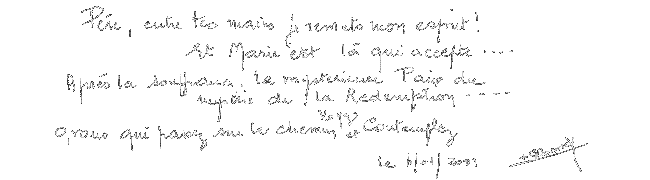 Père, entre tes mains je remets mon esprit!
Et Marie est là qui accepte ....
Après la souffrance, le mystérieuse Paix du
mystère de la Redemption ....
O, vous qui passez sur le chemin Voyez et Contemplez
le